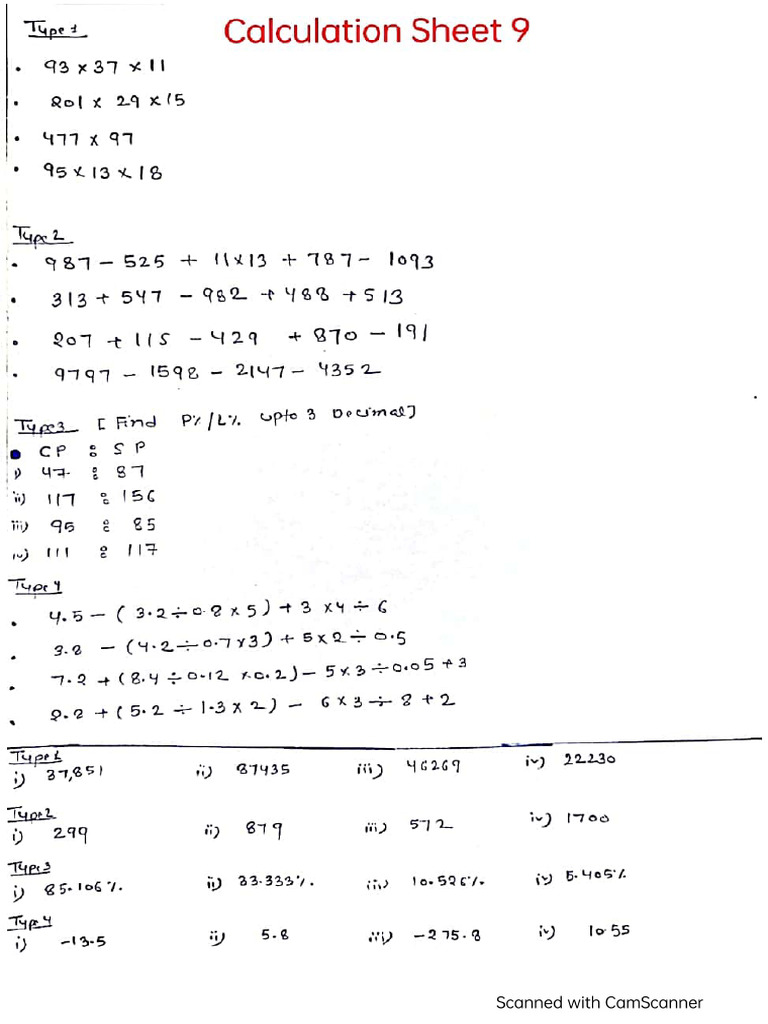 Calculation Sheet 9
Type 1
• 93 × 37 × 11
• 201 × 29 × 15
• 477 × 97
• 95 × 13 × 18
Type 2
• 987 - 525 + 11×13 + 787 - 1093
• 313 + 547 - 982 + 488 + 513
• 207 + 115 - 429 + 870 - 191
• 9797 - 1598 - 2147 - 4352
Type 3 [Find P%/L% upto 3 Decimal]
• CP : SP
i) 47 : 87
ii) 117 : 156
iii) 95 : 85
iv) 111 : 117
Type 4
• 4.5 - (3.2 ÷ 0.8 × 5) + 3 × 4 ÷ 6
• 3.8 - (4.2 ÷ 0.7 × 3) + 5 × 2 ÷ 0.5
• 7.2 + (8.4 ÷ 0.12 × 0.2) - 5 × 3 ÷ 0.05 + 3
• 2.8 + (5.2 ÷ 1.3 × 2) - 6 × 3 ÷ 8 + 2
Type 1
i) 37,851 ii) 87435 iii) 46269 iv) 22230
Type 2
i) 299 ii) 879 iii) 572 iv) 1700
Type 3
i) 85.106% ii) 33.333% iii) 10.526% iv) 5.405%
Type 4
i) -13.5 ii) 5.8 iii) -275.8 iv) 10.55
Scanned with CamScanner